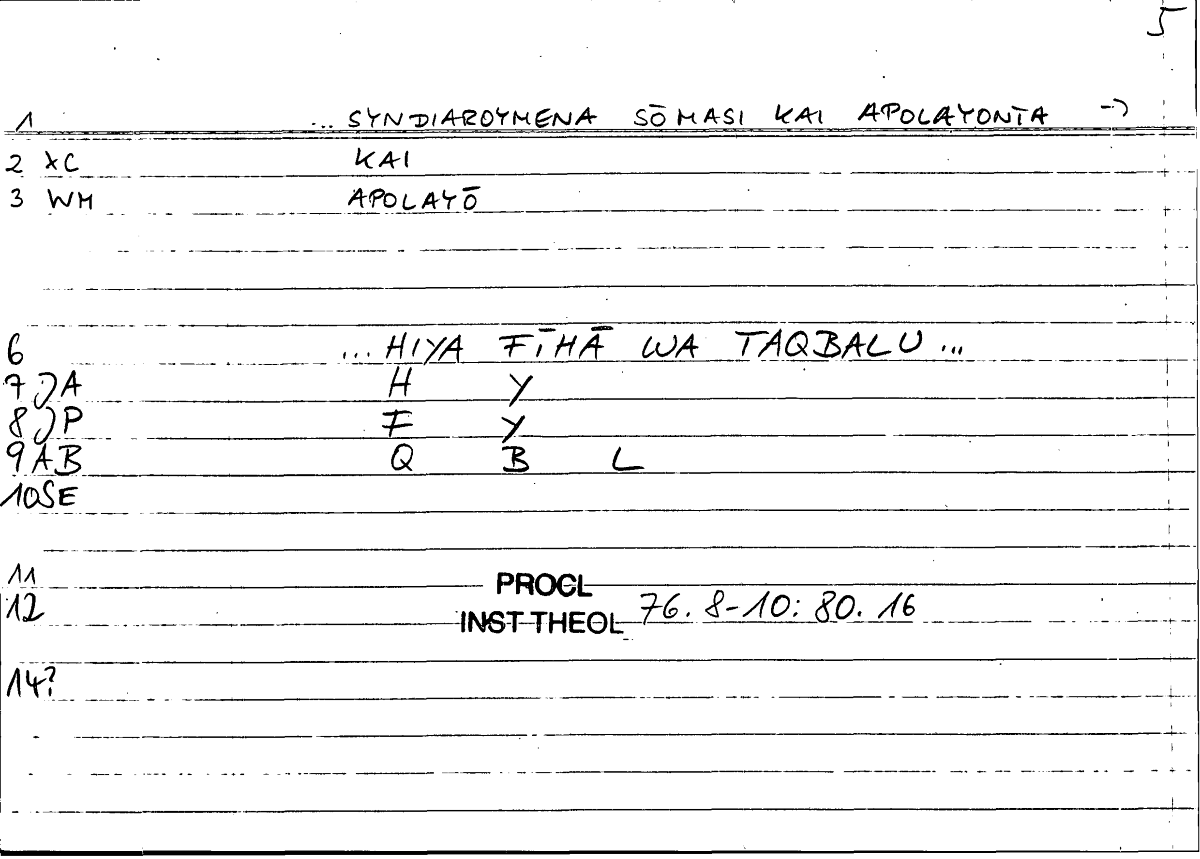 5
1 ... SYNDIAROYMENA SŌMASI KAI APOLAYONTA →
2 XC KAI
3 WM APOLAYŌ
6 ... HIYA FĪHĀ WA TAQBALU ...
7 JA H Y
8 JP F Y
9 AB Q B L
10 SE
11 PROCL
12 INST THEOL 76. 8-10: 80. 16
14?